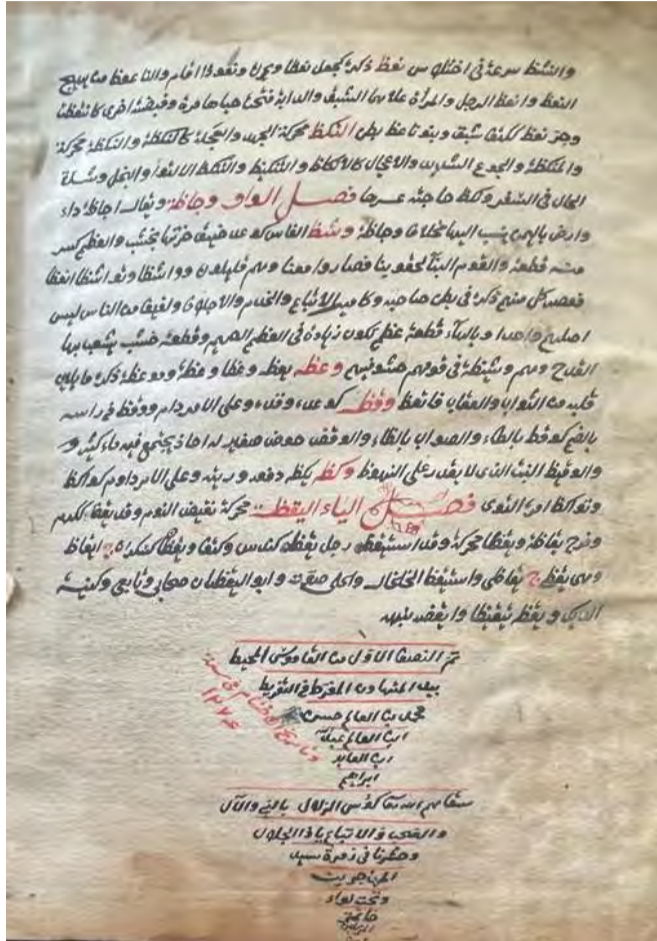 والشظ سرعة في اختلاس نعظ ذكره كجعل نعظا ويحرك ونعوظا اقام والناعوظ ما يهيج
النعظ وانعظ الرجل والمرأة علاهما الشبق والدابة فتحت حياها مرة وقبضته اخرى كانتعظت
وحر نعظ ككتف شبق وبنو ناعظ بطن النكظ محركة الجهد والعجلة كالنكظة والنكظة محركة
والمنكظة والجوع الشديد والاعجال كالانكاظ والتنكيظ والتنكظ الالتواء والبخل وشدة
الحال في السفر ونكظ حاجته عسرها فصل الواو وجاظة ويقال اجاظة داء
وارض باليمن ينسب اليها مخلاف وجاظة وشظ الفاس كوعد ضيق خرتها بخشب والعظم كسر
منه قطعة والقوم الينا لحقوا بنا فصاروا معنا وهم قليلون وواشظا وتواشظا انعظا
فعصر كل منهم ذكره في بطن صاحبه وكامير الاتباع والخدم والاحلاف ولفيف من الناس ليس
اصلهم واحدا وبالهاء قطعة عظم تكون زيادة في العظم الصميم وقطعة خشب يشعب بها
القدح وهم وشيظة في قومهم حشو فيهم وعظه يعظه وعظا وعظة وموعظة ذكره ما يلين
قلبه من الثواب والعقاب فاتعظ وقظه كوعده وقذه وعلى الامر دام ووقظ في راسه
بالضم كوقط بالطاء والصواب بالطاء والوقظ حوض صغير له اخاذ يجتمع فيه ماء كثير
والوقيظ المثبت الذي لا يقدر على النهوظ وكظه يكظه دفعه وزبنه وعلى الامر داوم كواكظ
وتواكظ امره التوى فصل الياء اليقظة محركة نقيض النوم وقد يقظ ككرم
وفرح يقاظة ويقظا محركة وقد استيقظ رجل يقظ كندس وكتف ويقظان كسكران ج ايقاظ
وهي يقظى ج يقاظى واستيقظ الخلخال والحلى صوت وابو اليقظان صحابي وتابعي وكنية
الديك ويقظه تيقيظا وايقظه نبهه
تم النصف الاول من القاموس المحيط
بيد المتهاون المفرط في التفريط
محمد بن العالم حسن
ابن العالم عبد الله
ابن العابد
ابراهيم
وتاريخ الاختتام في سنة
١٢٧٤
سقاهم الله تعا كؤس الزلال بالنبي والآل
والصحب والاتباع ياذا الجلال
وحشرنا في زمرة سيد
المرسلين
وتحت لواء
خاتم